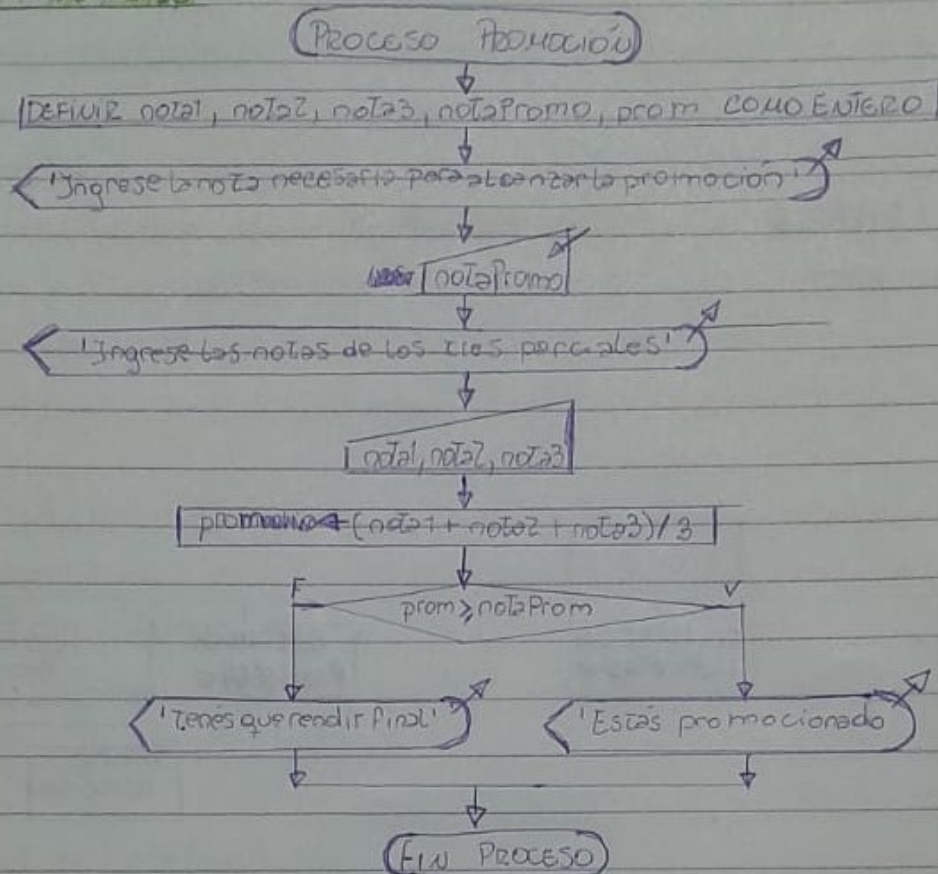 PROCESO PROMOCIÓN
DEFINIR nota1, nota2, nota3, notaPromo, prom COMO ENTERO
'Ingrese la nota necesaria para alcanzar la promoción'
notaPromo
'Ingrese las notas de los tres parciales'
nota1, nota2, nota3
prom ← (nota1 + nota2 + nota3) / 3
F V
prom ≥ notaProm
'Tenés que rendir final' 'Estás promocionado
FIN PROCESO